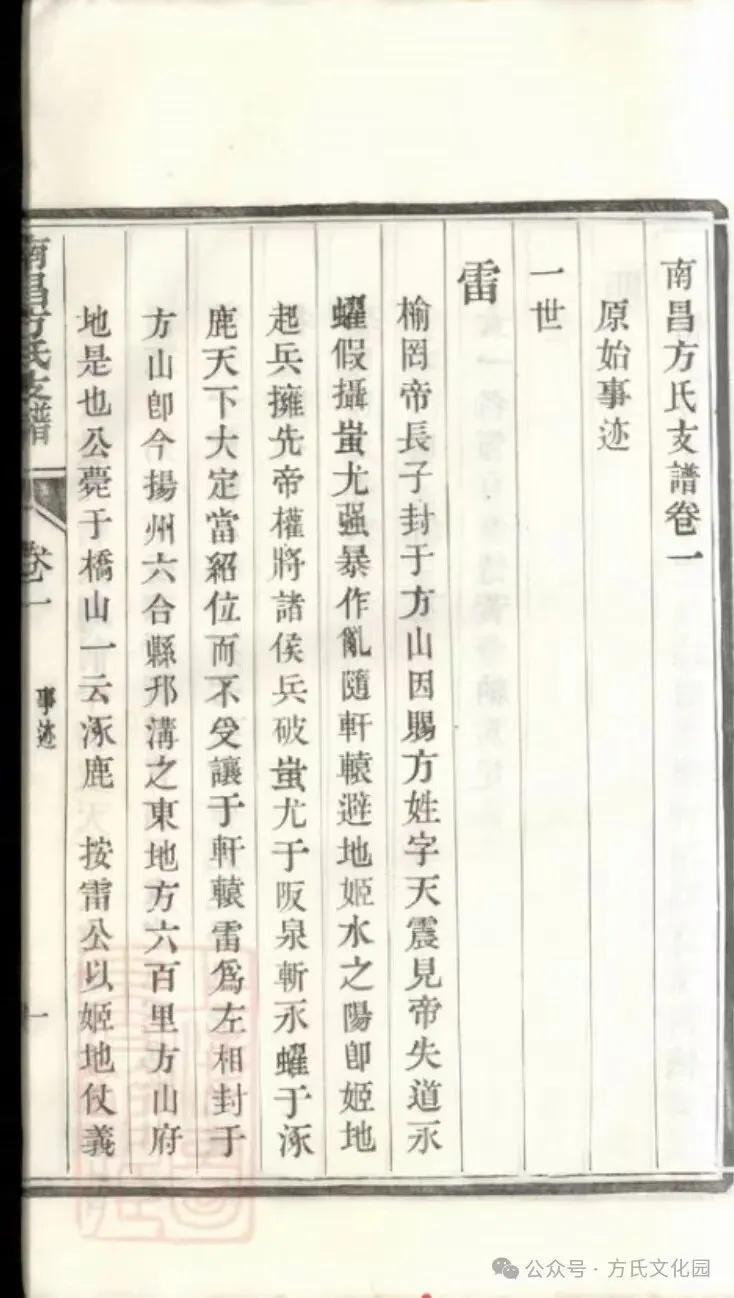 南昌方氏支譜卷一
原始事迹
一世
雷
榆罔帝長子封于方山因賜方姓字天震見帝失道永
蠗假攝蚩尤强暴作亂隨軒轅避地姬水之陽卽姬地
起兵擁先帝權將諸侯兵破蚩尤于阪泉斬永蠗于涿
鹿天下大定當紹位而不受讓于軒轅雷爲左相封于
方山卽今揚州六合縣邗溝之東地方六百里方山府
地是也公薨于橋山一云涿鹿 按雷公以姬地仗義
南昌方氏支譜
卷一
事迹
一
公众号·方氏文化园